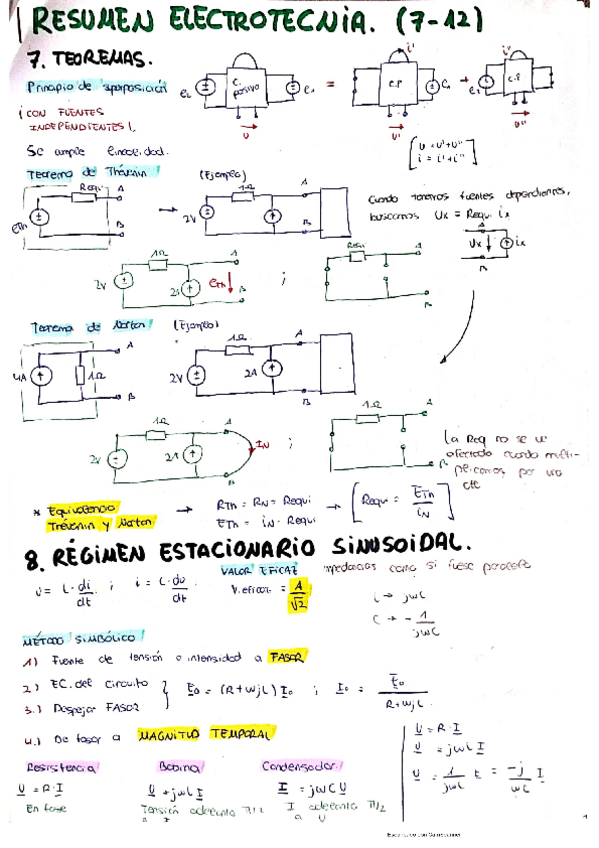 RESUMEN ELECTROTECNIA. (7-12)
7. TEOREMAS.
Principio de superposición
¡CON FUENTES
INDEPENDIENTES!
Se cumple linealidad.
e₂ C. pasivo e₁ = C.P e₁ + e₂ C.P
U U' i' U'' i''
[U = U' + U''
i = i' + i'']
Teorema de Thévenin (Ejemplo)
ETh Requi A B → 2V 1Ω A B
Cuando tenemos fuentes dependientes,
buscamos Ux = Requi ix
A Ux ix B
2V 1Ω 2A eTh A B ; Requi A B
Teorema de Norton! (Ejemplo)
4A 1Ω A B 2V 1Ω 2A A B
2V 1Ω 2A A IN B ; 1Ω A B
La Req no se ve
afectada cuando multi-
plicamos por una
cte
* Equivalencia
Thévenin y Norton
→ RTh = RN = Requi
ETh = iN · Requi
→ [Requi = ETh / iN]
8. RÉGIMEN ESTACIONARIO SINUSOIDAL.
u = L · di/dt ; i = C · du/dt
VALOR EFICAZ
V.eficaz = A/√2
Impedancias como si fuese
L → jwL
C → -1/jwC
MÉTODO SIMBÓLICO!
1) Fuente de tensión o intensidad a FASOR
2) EC. del circuito
3.) Despejar FASOR
E₀ = (R + wjL) I₀ ; I₀ = E₀ / R + wjL
4.) De fasor a MAGNITUD TEMPORAL
Resistencia
U = R · I
En fase
Bobina
U = jwL I
Tensión adelanta π/2
a I
Condensador!
I = jwC U
I adelanta π/2
a U
U = R · I
U = jwL I
U = 1/jwC I = -j/wC I
Escaneado con CamScanner